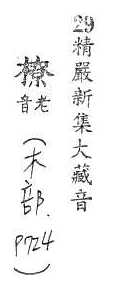 29精嚴新集大藏音
橑老音(木部.P724)